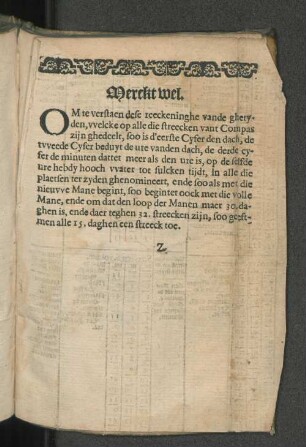 Merckt wel.
OM te verstaen dese reeckeninghe vande ghety-
den, vvelcke op alle die streecken vant Compas
zijn ghedeelt, soo is d'eerste Cyfer den dach, de
tvveede Cyfer beduyt de ure vanden dach, de derde cy-
fer de minuten dattet meer als den ure is, op de selfde
ure hebdy hooch vvater tot sulcken tijdt, in alle die
plaetsen hier zyden ghenomineert, ende soo als met die
nieuvve Mane begint, soo begintet oock met die volle
Mane, ende om dat den loop der Manen maer 30. da-
ghen is, ende daer teghen 32. streecken zijn, soo geeft-
men alle 15. daghen een streeck toe.
2